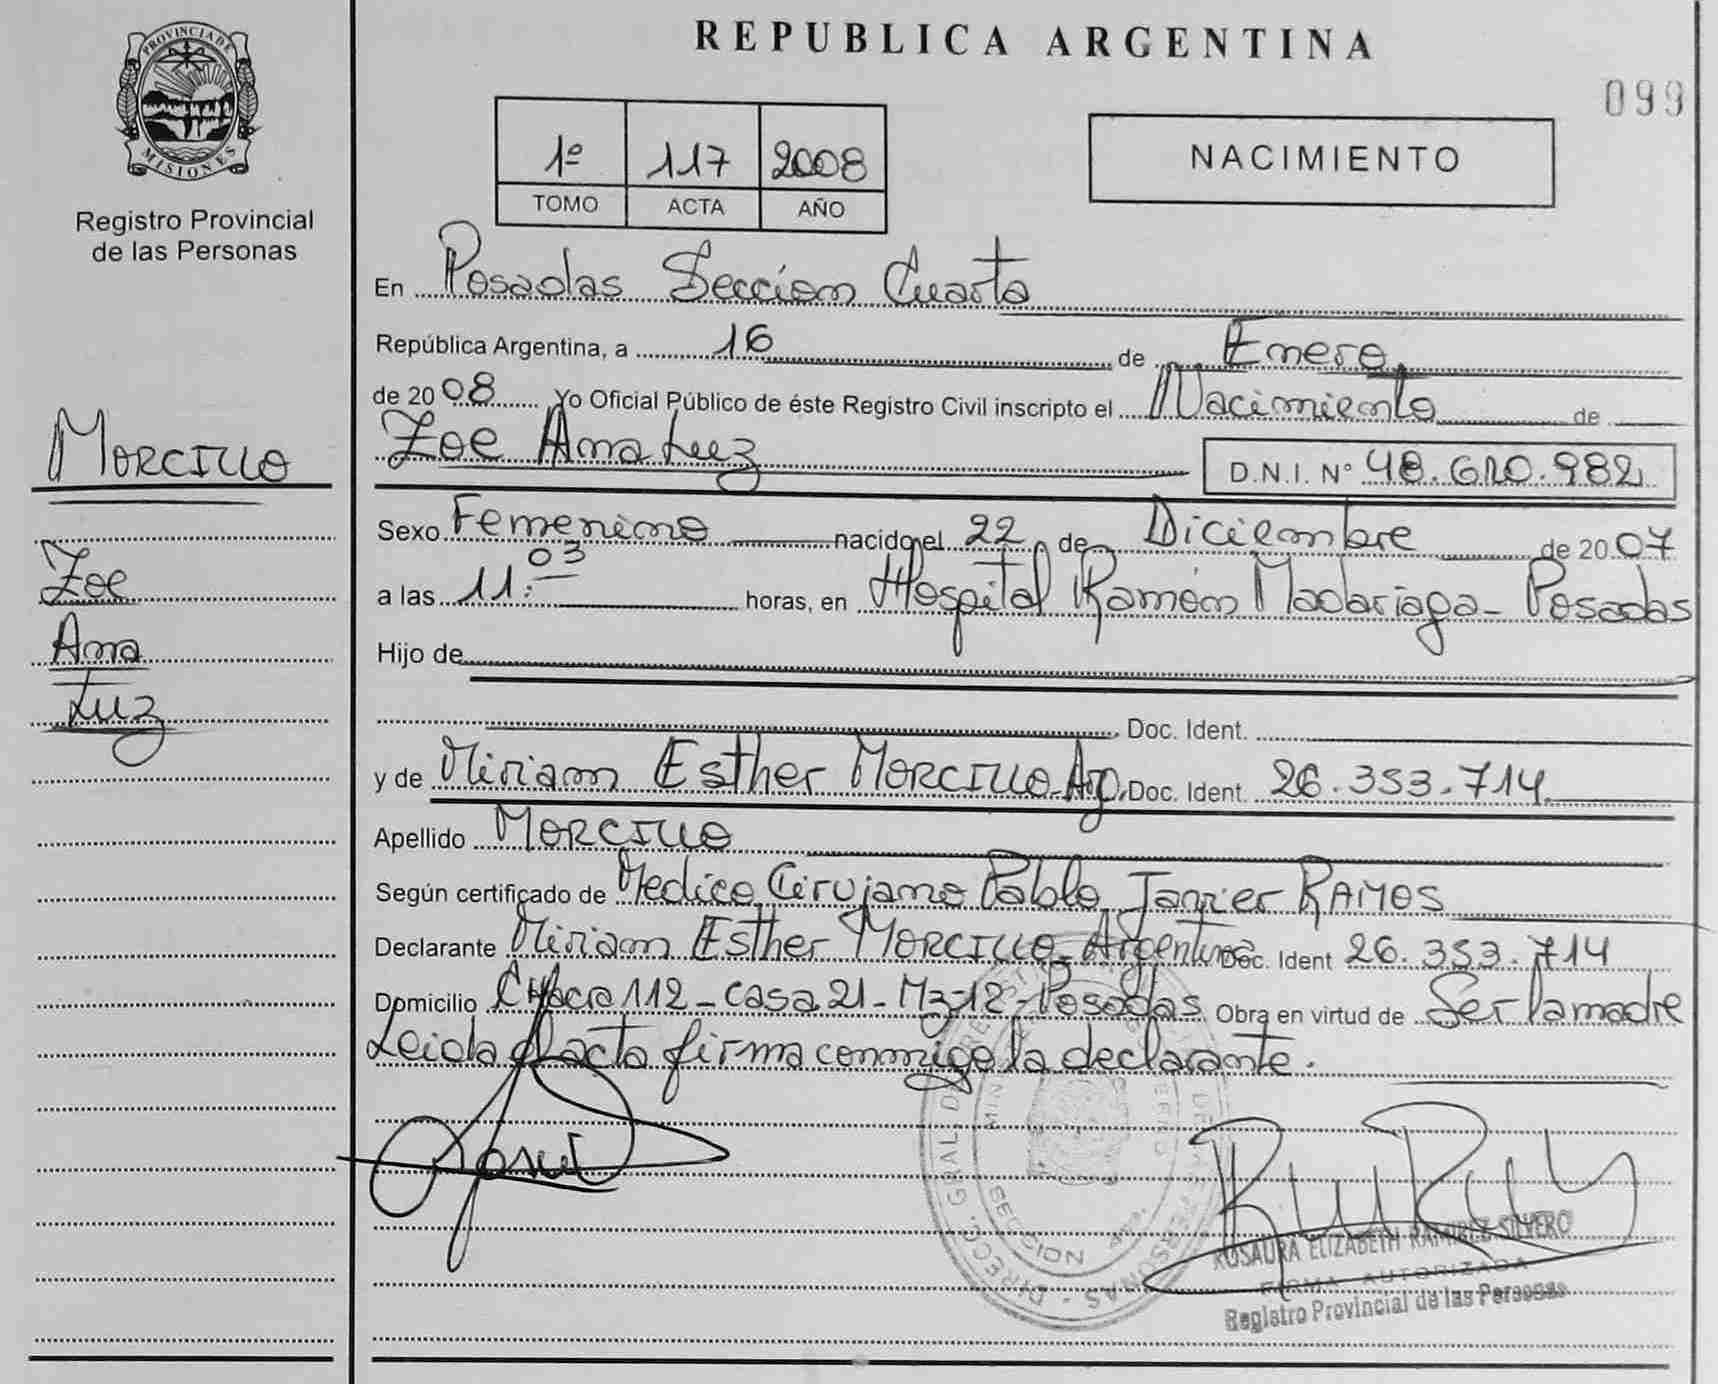 PROVINCIA DE
MISIONES
Registro Provincial
de las Personas
MORCILLO
Zoe
Ana
Luz
REPUBLICA ARGENTINA
099
1º 117 2008
TOMO ACTA AÑO
NACIMIENTO
En Posadas Seccion Cuarta
República Argentina, a 16 de Enero
de 2008 Yo Oficial Público de éste Registro Civil inscripto el Nacimiento de
Zoe Ana Luz D.N.I. Nº 48.610.982
Sexo Femenino nacido el 22 de Diciembre de 2007
a las 11:03 horas, en Hospital Ramón Madariaga - Posadas
Hijo de
Doc. Ident.
y de Miriam Esther MORCILLO - Arg. Doc. Ident. 26.353.714
Apellido MORCILLO
Según certificado de Medico Cirujano Pablo Javier RAMOS
Declarante Miriam Esther MORCILLO - Argentina Doc. Ident 26.353.714
Domicilio CHacra 112 - casa 21 - Mz-12 - Posadas Obra en virtud de Ser la madre
Leida el acta firma conmigo la declarante.
ROSAURA ELIZABETH RAMIREZ SILVERO
FIRMA AUTORIZADA
Registro Provincial de las Personas